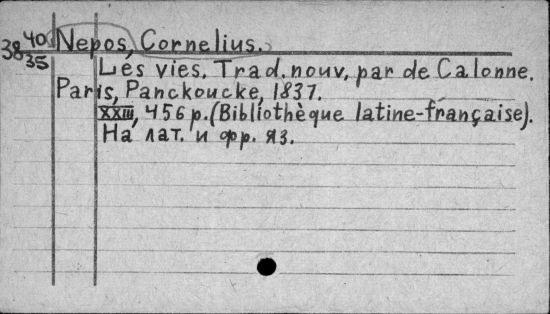 38 40/35 Nepos, Cornelius.
Les vies. Trad. nouv. par de Calonne.
Paris, Panckoucke, 1837.
XXIII, 456 p. (Bibliothèque latine-française).
На лат. и фр. яз.